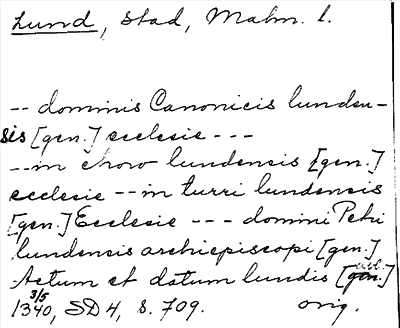 Lund, stad, Malm. l.
-- dominis Canonicis lunden-
sis [gen.] ecclesie ---
-- in choro lundensis [gen.]
ecclesie -- in turri lundensis
[gen.] Ecclesie --- domini Petri
lundensis archiepiscopi [gen.]
Actum et datum lundis [abl.]
1340 3/5, SD 4, s. 709. orig.